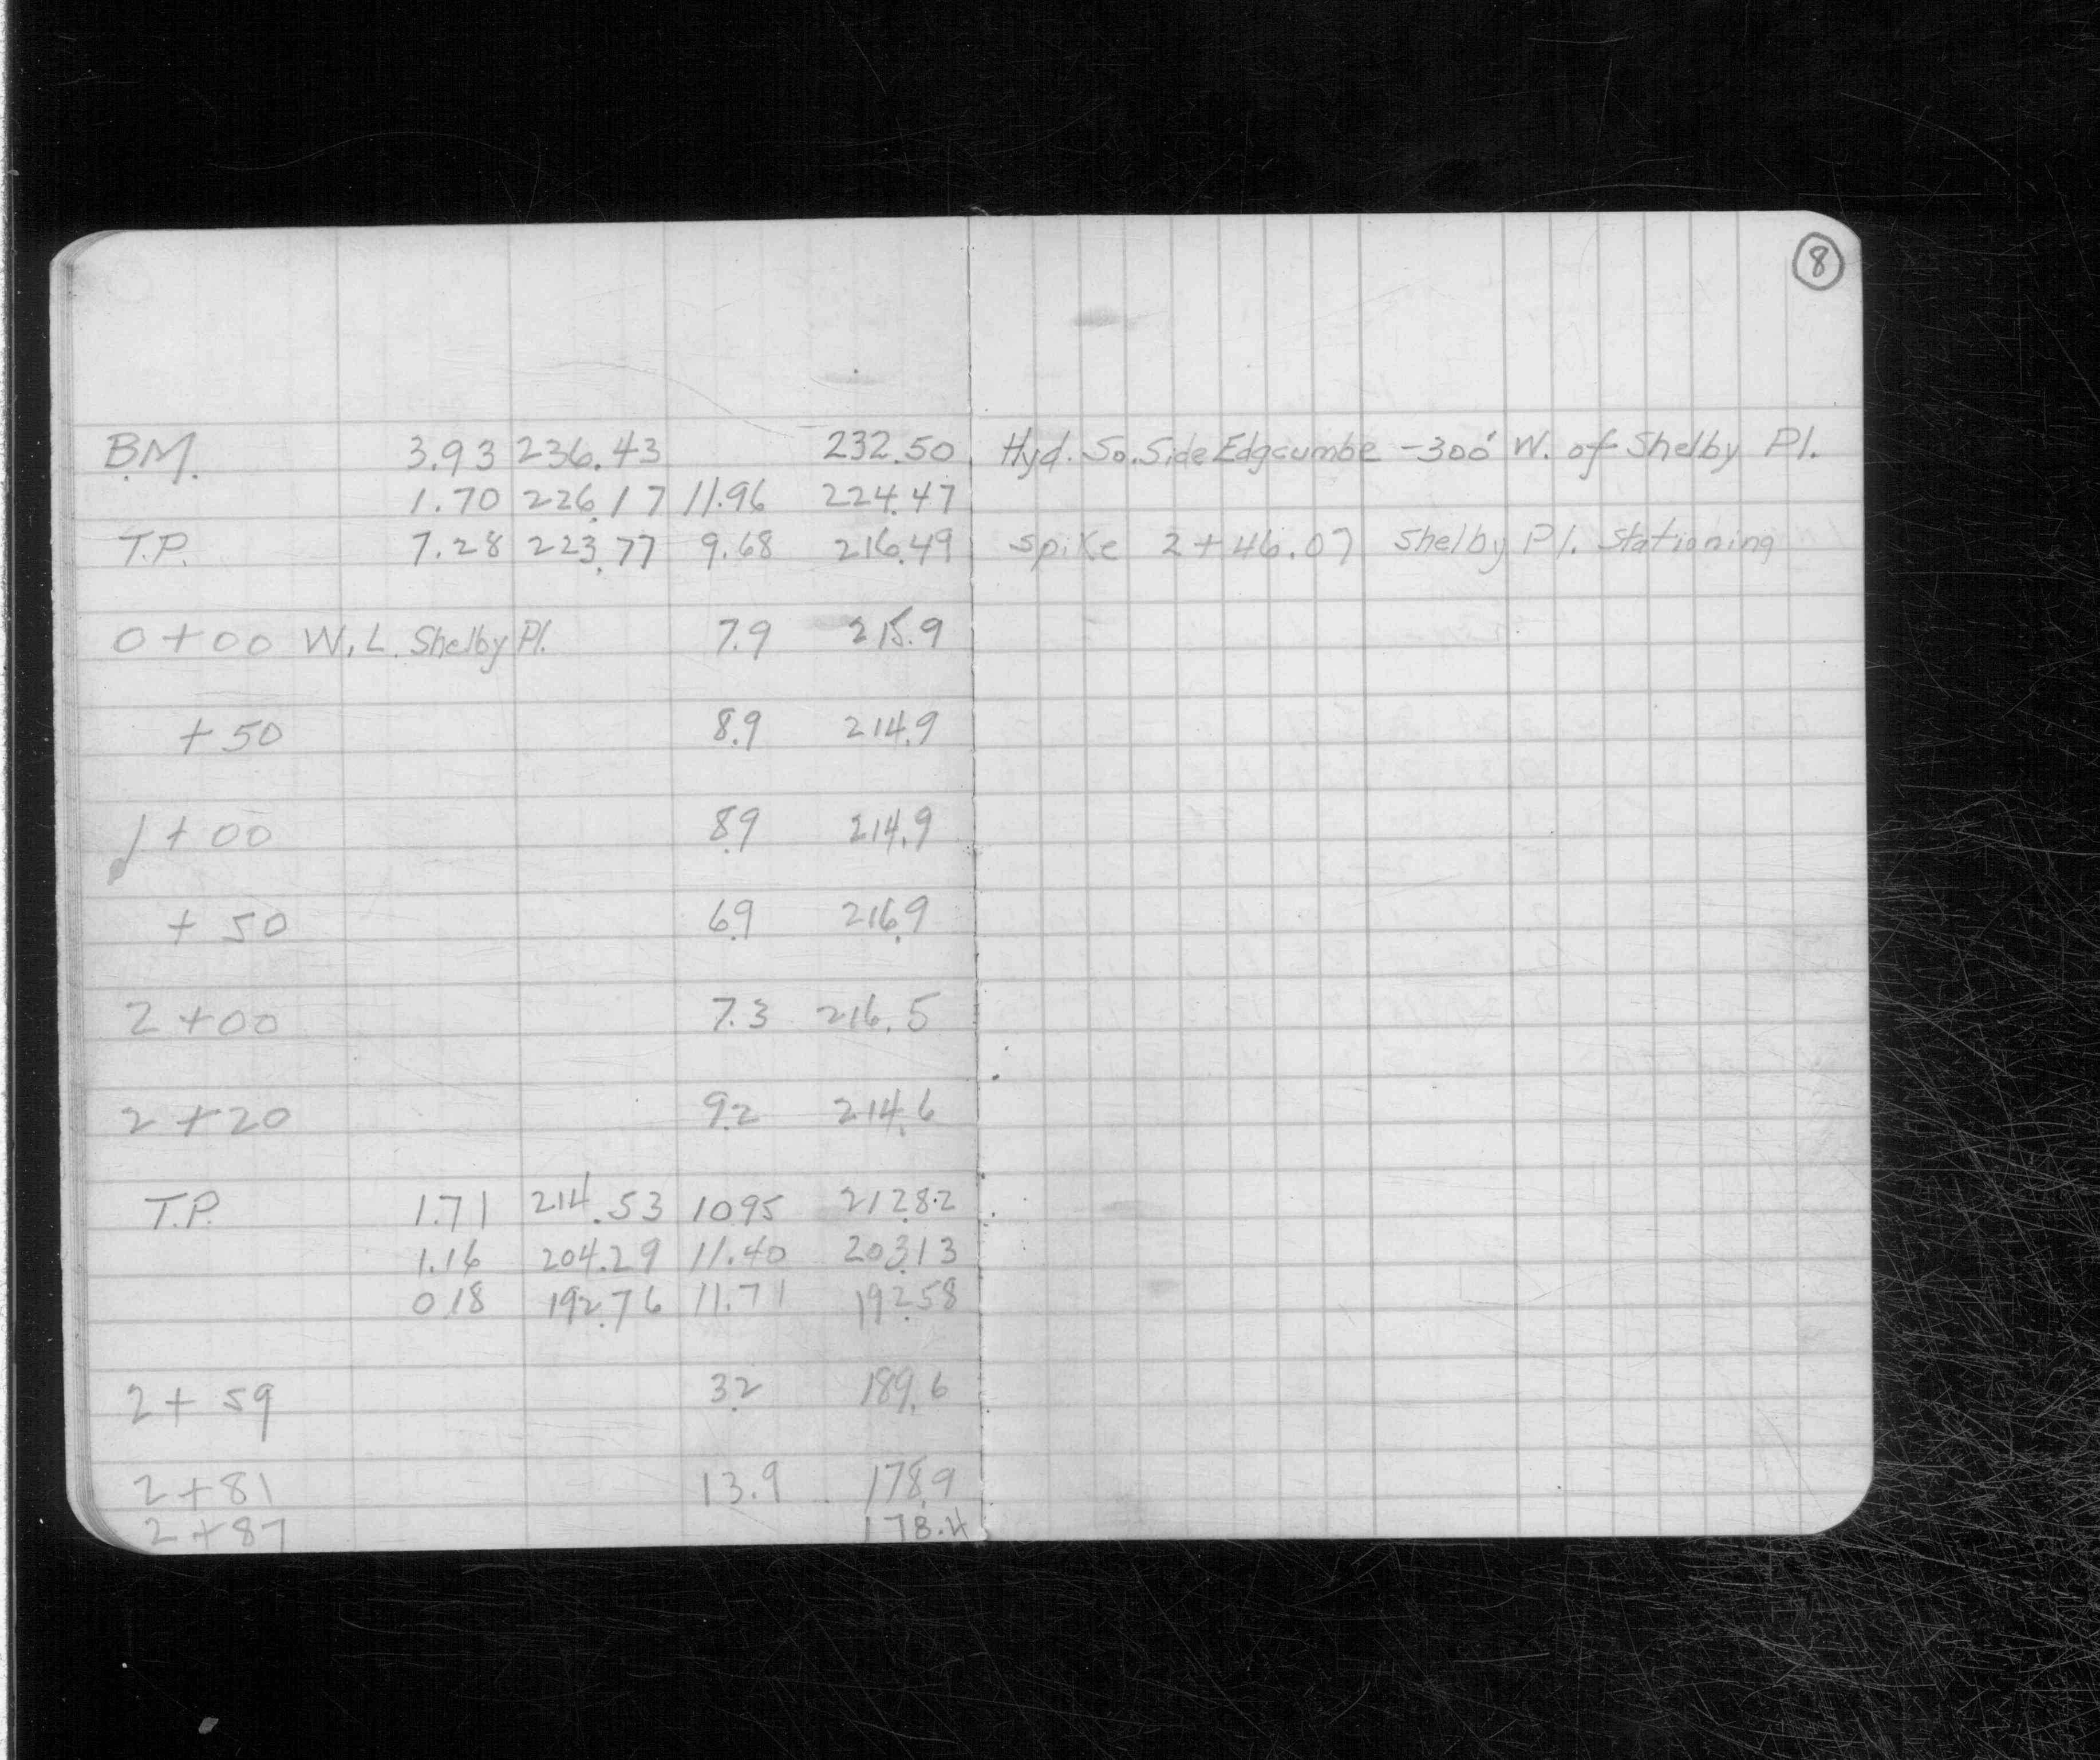 8
B.M. 3.93 236.43 232.50 Hyd. So. Side Edgcumbe -300' W. of Shelby Pl.
1.70 226.17 11.96 224.47
T.P. 7.28 223.77 9.68 216.49 spike 2+46.07 Shelby Pl. Stationing
0+00 W.L. Shelby Pl. 7.9 215.9
+50 8.9 214.9
1+00 8.9 214.9
+50 6.9 216.9
2+00 7.3 216.5
2+20 9.2 214.6
T.P. 1.71 214.53 10.95 212.82
1.16 204.29 11.40 203.13
0.18 192.76 11.71 192.58
2+59 3.2 189.6
2+81 13.9 178.9
2+87 178.4